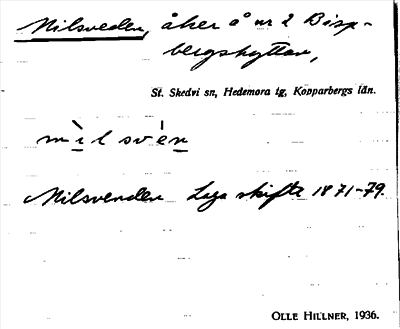 Nilsveden, åker å nr 2 Bisp-
bergshyttan,
St. Skedvi sn, Hedemora tg, Kopparbergs län.
nìlsvèn
Nilsvenden Laga skifte 1871-79.
OLLE HILLNER, 1936.